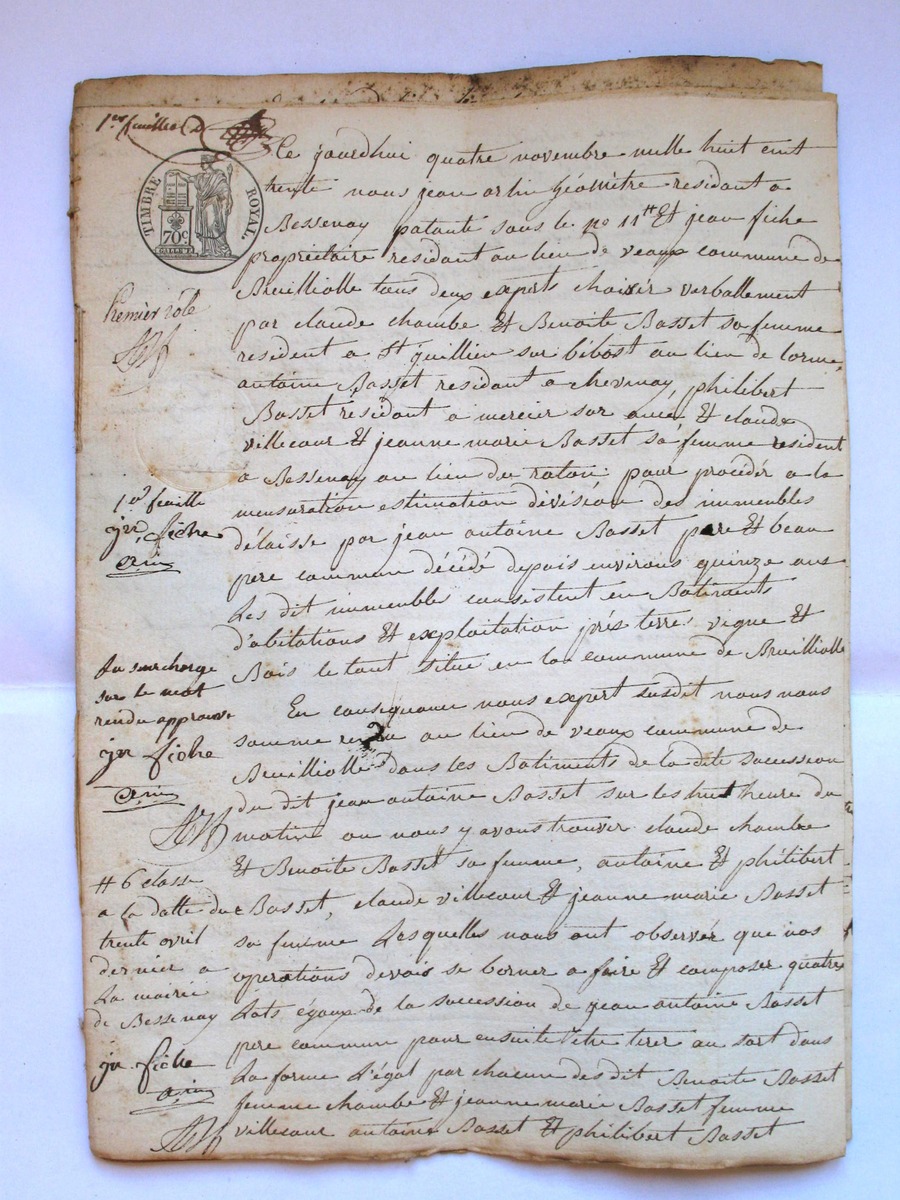 1er feuillet
TIMBRE ROYAL.
70c
Ce jourdhui quatre novembre mille huit cent
trente nous jean arlin Géomètre residant a
Bessenay patanté sous le no 11 # Et jean fiche
propriétaire residant au lien de veaux commune de
Bruilliolle tous deux experts choisir verballement
par claude chambe Et Benoite Basset sa femme
resident a St jullien sur bibost au lien de lorme,
antoine Basset residant a chevinay, philibert
Basset résidant a mercier sur
Et claude
villecour Et jeanne marie Basset sa femme resident
a Bessenay au lien du raton pour procéder a la
mensuration estimation division des immeubles
délaissé par jean antoine Basset pere Et beau
pere commun décédé depuis environs quinze ans
Les dit immeubles consistent en Batiments
d'abitations Et exploitation prés terres vigne Et
Bois le tout situé en la commune de Bruilliolle
En consequance nous expert susdit nous nous
somme rendu au lien de veaux commune de
Bruilliolle dans les Batiments de la dite succession
du dit jean antoine Basset sur les huit heure du
matin ou nous y avons trouver claude chambe
Et Benoite Basset sa femme, antoine Et philibert
Basset, claude villecour Et jeanne marie Basset
sa femme Lesquelles nous ont observée que nos
operations devais se borner a faire Et composer quatre
Lots égaux de la succession de jean antoine Basset
pere commun pour ensuite être tirer au sort dans
La forme L'égal par chacun des dit Benoite Basset
femme chambe Et jeanne marie Basset femme
villecour antoine Basset Et philibert Basset
Premier rôle
1er feuille
jn fiche
La surcharge
sur le mot
rendu approuve
jn fiche
# 6 classe
a la datte du
trente avril
dernier a
La mairie
de Bessenay
jn fiche